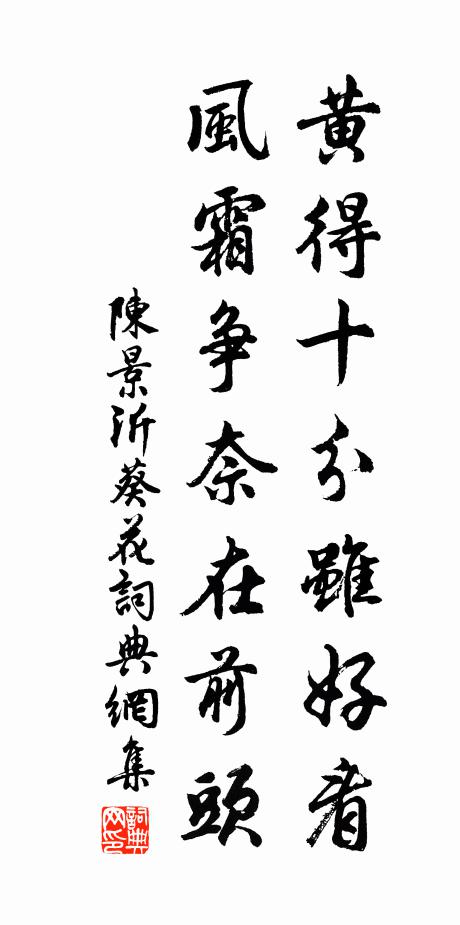 黃得十分雖好看
風霜爭奈在前頭
陳景沂葵花詞典網集
詞典網印